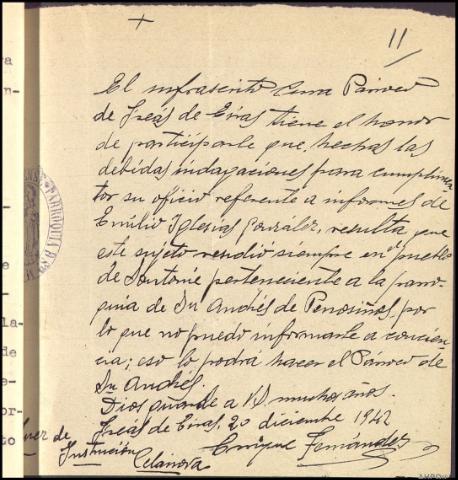 +
11
El infrascrito Cura Párroco
de Freás de Eiras tiene el honor
de participarle que, hechas las
debidas indagaciones para cumplimen
tar su oficio referente a informes de
Emilio Iglesias González, resulta que
este sujeto residió siempre en el pueblo
de perteneciente a la parro-
quia de Sn Andrés de Penosiños, por
lo que no puedo informarle a concien-
cia; eso lo podrá hacer el Párroco de
Sn Andrés.
Dios guarde a V. muchos años.
Freás de Eiras, 20 diciembre 1942
Enrique Fernández
Juez de
Instrucción Celanova